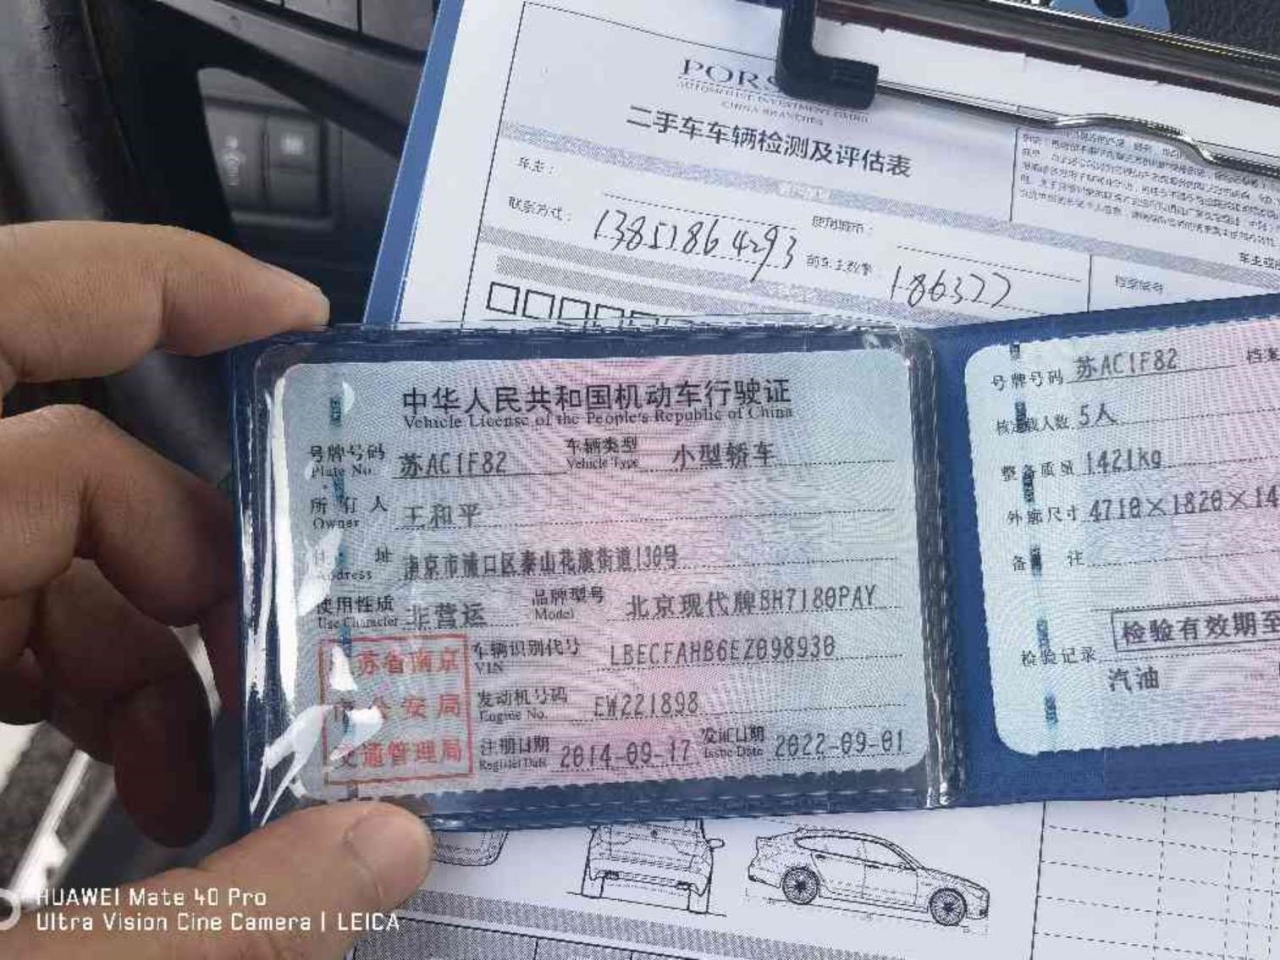 POR
二手车车辆检测及评估表
车主：
使用城市：
联系方式：
13851864293
前车主数量
186322
中华人民共和国机动车行驶证
Vehicle License of the People's Republic of China
号牌号码
Plate No.
苏AC1F82
车辆类型
Vehicle Type
小型轿车
所有人
Owner
王和平
址
Address
南京市浦口区泰山花旗街道130号
使用性质
Use Character
非营运
品牌型号
Model
北京现代牌BH7180PAY
车辆识别代号
VIN
LBECFAHB6EZ098930
发动机号码
Engine No.
EW221898
注册日期
Register Date
2014-09-17
发证日期
Issue Date
2022-09-01
苏省南京
公安局
交通管理局
号牌号码
苏AC1F82
档案
核定载人数
5人
整备质量
1421kg
外廓尺寸
4710×1820×14
备 注
检验有效期至
检验记录
汽油
HUAWEI Mate 40 Pro
Ultra Vision Cine Camera | LEICA